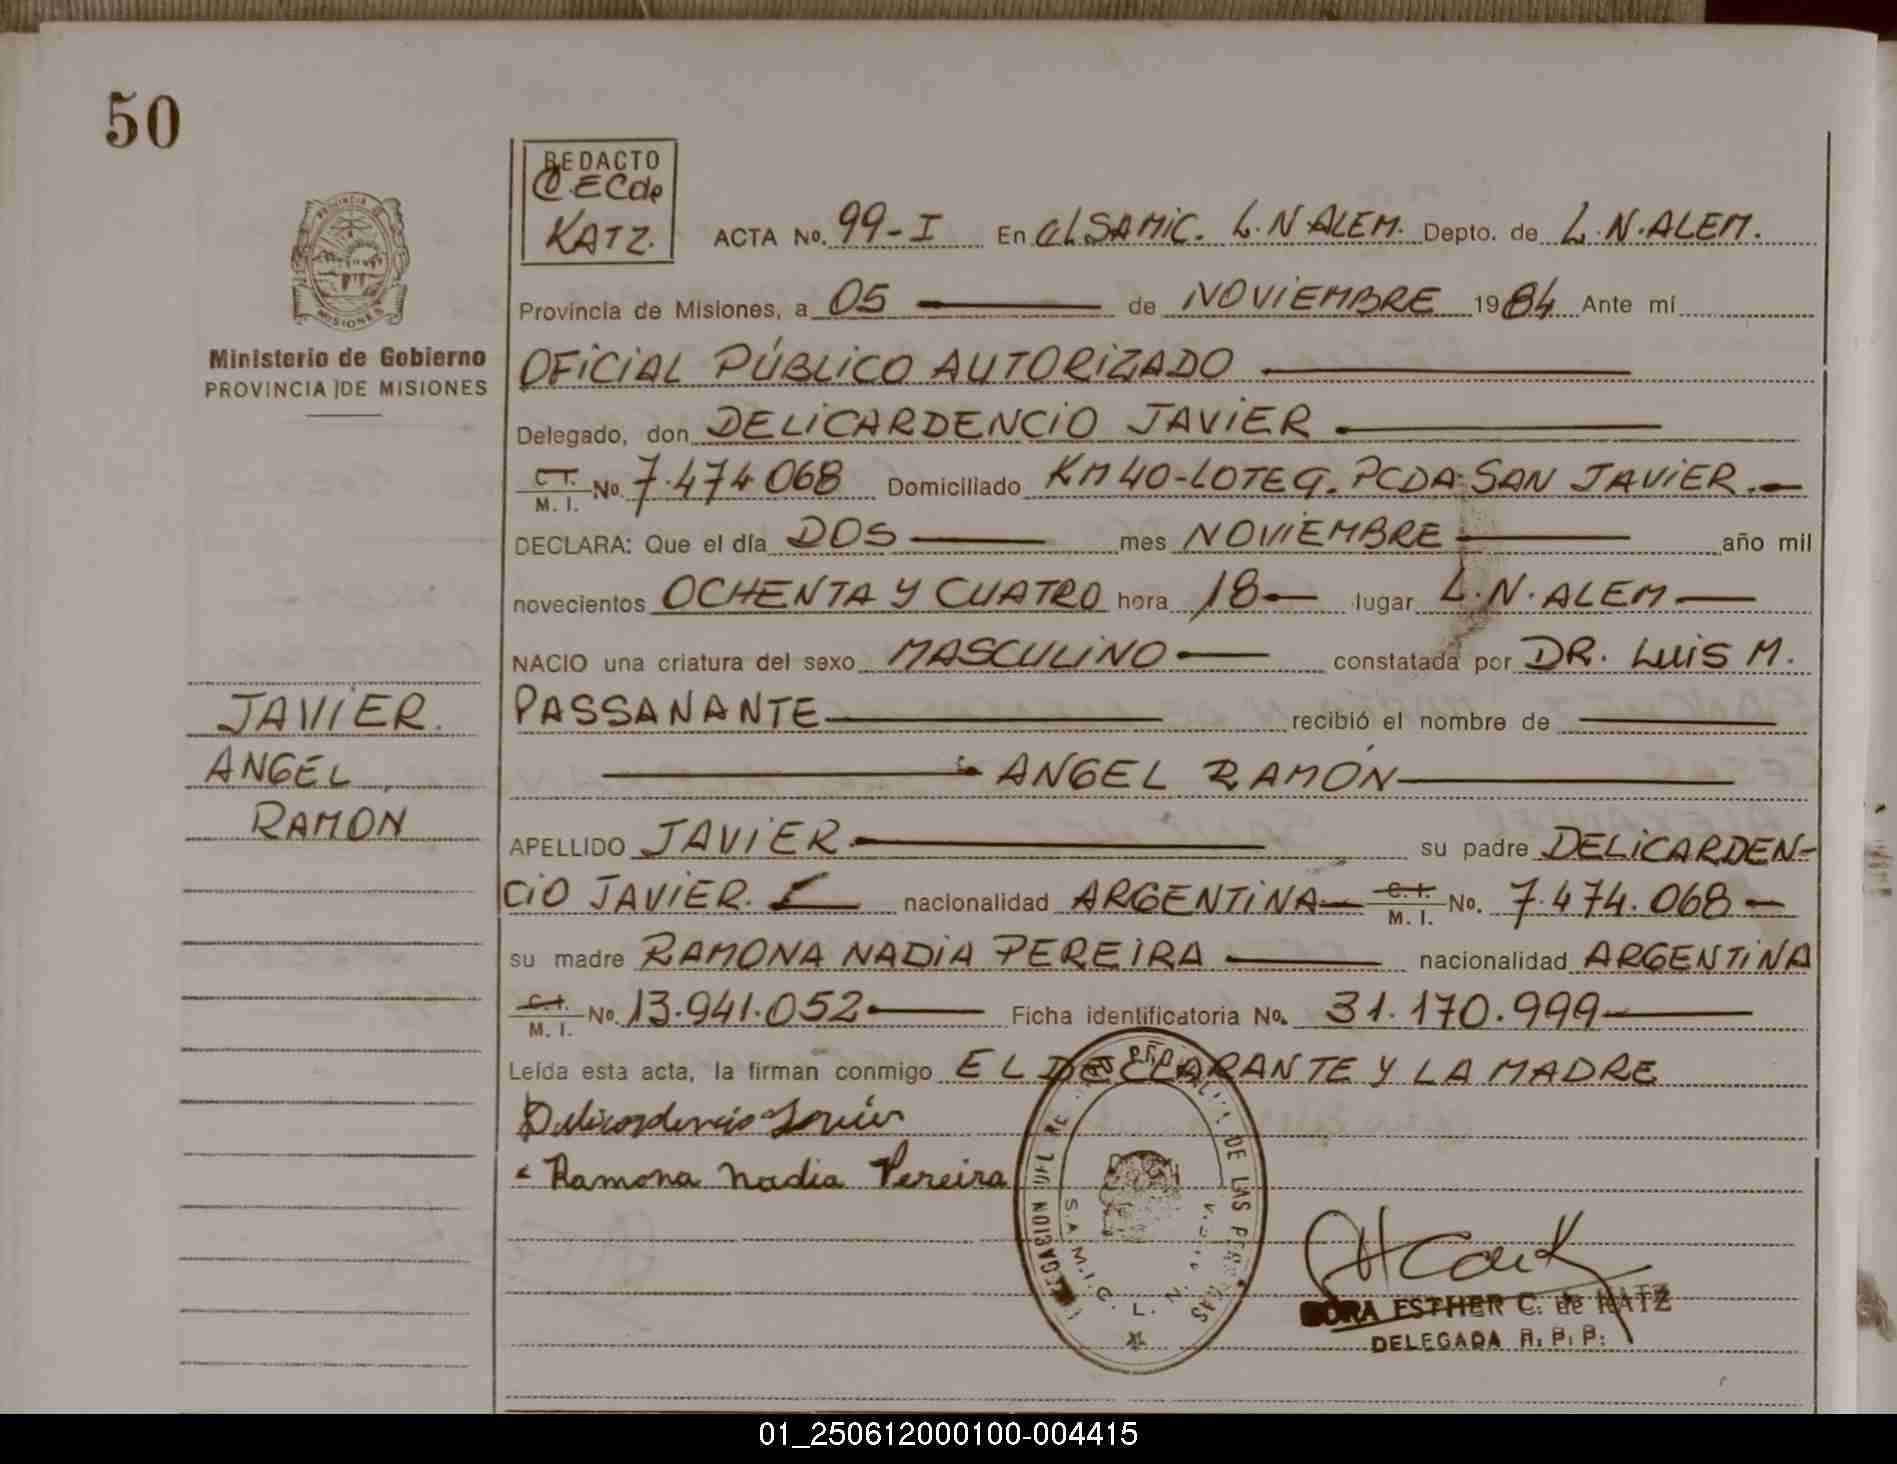 50
REDACTO
KATZ.
ACTA No. 99-I En el SAMIC. L.N ALEM. Depto. de L.N.ALEM.
Provincia de Misiones, a 05 de NOVIEMBRE 1984 Ante mí
Ministerio de Gobierno
PROVINCIA DE MISIONES
OFICIAL PÚBLICO AUTORIZADO
Delegado, don DELICARDENCIO JAVIER
C.I.
M. I. No. 7.474.068 Domiciliado KM 40-LOTE 9. PCDA. SAN JAVIER.
DECLARA: Que el día DOS mes NOVIEMBRE año mil
novecientos OCHENTA Y CUATRO hora 18 lugar L.N. ALEM
NACIO una criatura del sexo MASCULINO constatada por DR. LUIS M.
PASSANANTE recibió el nombre de
ANGEL RAMÓN
JAVIER.
ANGEL
RAMON
APELLIDO JAVIER su padre DELICARDEN-
CIO JAVIER. nacionalidad ARGENTINA C.I.
M. I. No. 7.474.068
su madre RAMONA NADIA PEREIRA nacionalidad ARGENTINA
C.I.
M. I. No. 13.941.052 Ficha identificatoria No. 31.170.999
Leída esta acta, la firman conmigo EL DECLARANTE Y LA MADRE
Delicardencio Javier
Ramona Nadia Pereira
DORA ESTHER C. de KATZ
DELEGADA R. P. P.
S.A.M.I.C. L. N.
01_250612000100-004415